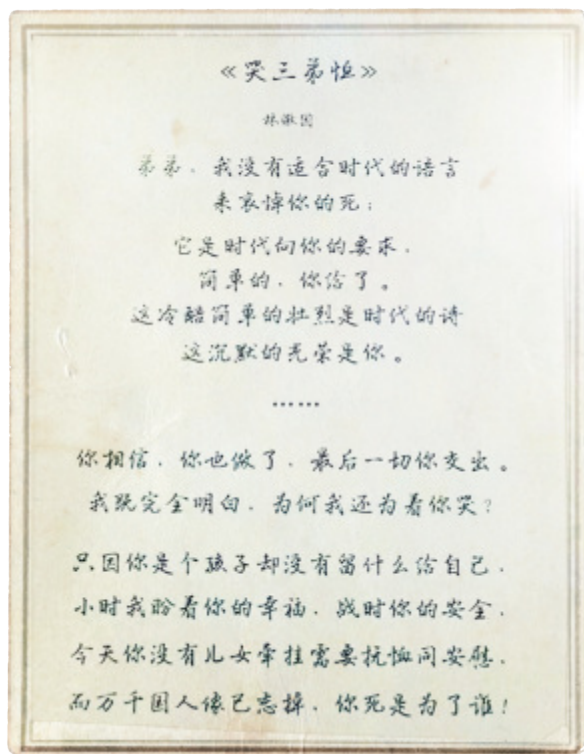 《哭三弟恒》
林徽因
弟弟，我没有适合时代的语言
来哀悼你的死；
它是时代向你的要求，
简单的，你给了。
这冷酷简单的壮烈是时代的诗
这沉默的光荣是你。
……
你相信，你也做了，最后一切你交出。
我既完全明白，为何我还为着你哭？
只因你是个孩子却没有留什么给自己，
小时我盼着你的幸福，战时你的安全，
今天你没有儿女牵挂需要抚恤同安慰，
而万千国人像已忘掉，你死是为了谁！